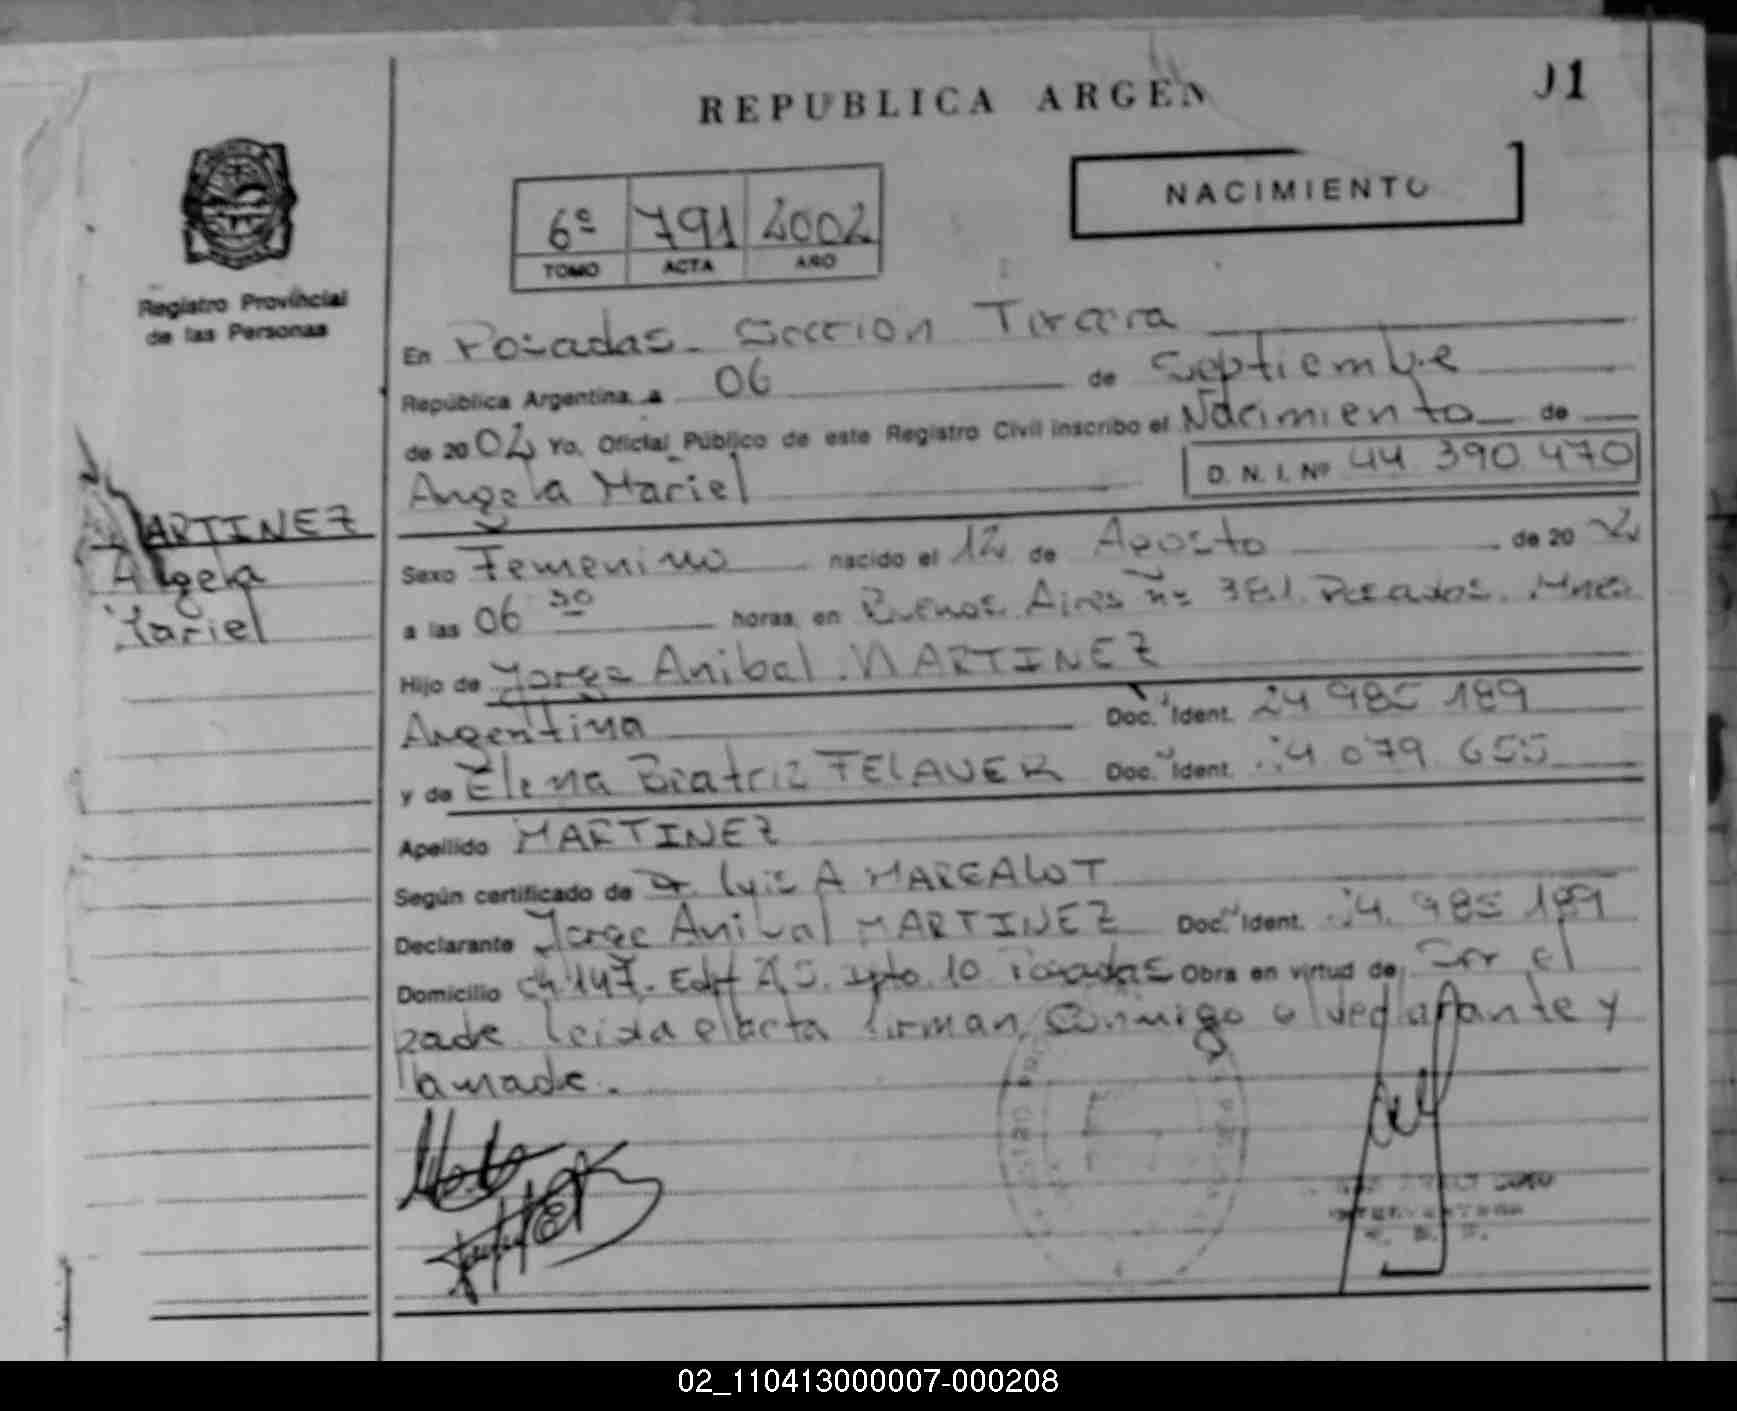 REPUBLICA ARGEN
J1
NACIMIENTO
6º 791 2002
TOMO ACTA AÑO
Registro Provincial
de las Personas
En Posadas - Seccion Tercera
República Argentina, a 06 de Septiembre
de 2002 Yo, Oficial Público de este Registro Civil inscribo el Nacimiento de
Angela Mariel D. N. I. Nº 44 390 470
ARTINEZ
Angela
Mariel
Sexo Femenino nacido el 12 de Agosto de 20 2
a las 06 30 horas, en Buenos Aires nº 381. Posadas. Mnes
Hijo de Jorge Anibal MARTINEZ
Argentina Doc. Ident. 24 985 189
y de Elena Beatriz FELAUER Doc. Ident. 24 079 655
Apellido MARTINEZ
Según certificado de Dr. Luis A
Declarante Jorge Anibal MARTINEZ Doc. Ident. 24. 985 189
Domicilio Ch 147. Edif Dpto. 10 Posadas Obra en virtud de Ser el
padre. leida el acta firman conmigo el declarante y
la madre.
02_110413000007-000208